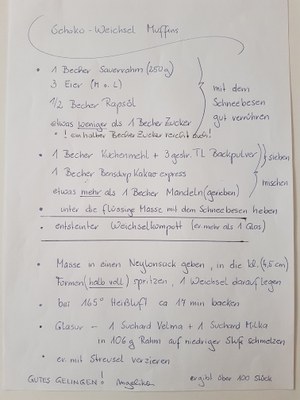 Schoko - Weichsel Muffins
• 1 Becher Sauerrahm (250g)
3 Eier (M + L)
1/2 Becher Rapsöl
etwas weniger als 1 Becher Zucker
* ! ein halber Becher Zucker reicht auch!
mit dem
Schneebesen
gut verrühren
• 1 Becher Kuchenmehl + 3 gestr. TL Backpulver
1 Becher Bensdorp Kakao express
etwas mehr als 1 Becher Mandeln (gerieben)
sieben
mischen
• unter die flüssige Masse mit dem Schneebesen heben
• entsteinter Weichselkompott (er mehr als 1 Glas)
• Masse in einen Neylonsack geben, in die kl. (4,5 cm)
Formen (halb voll) spritzen, 1 Weichsel darauflegen
• bei 165° Heißluft ca 17 min backen
• Glasur - 1 Suchard Velma + 1 Suchard Milka
in 106g Rahm auf niedriger Stufe schmelzen
• ev. mit Streusel verzieren
GUTES GELINGEN! Angelika
ergibt über 100 Stück